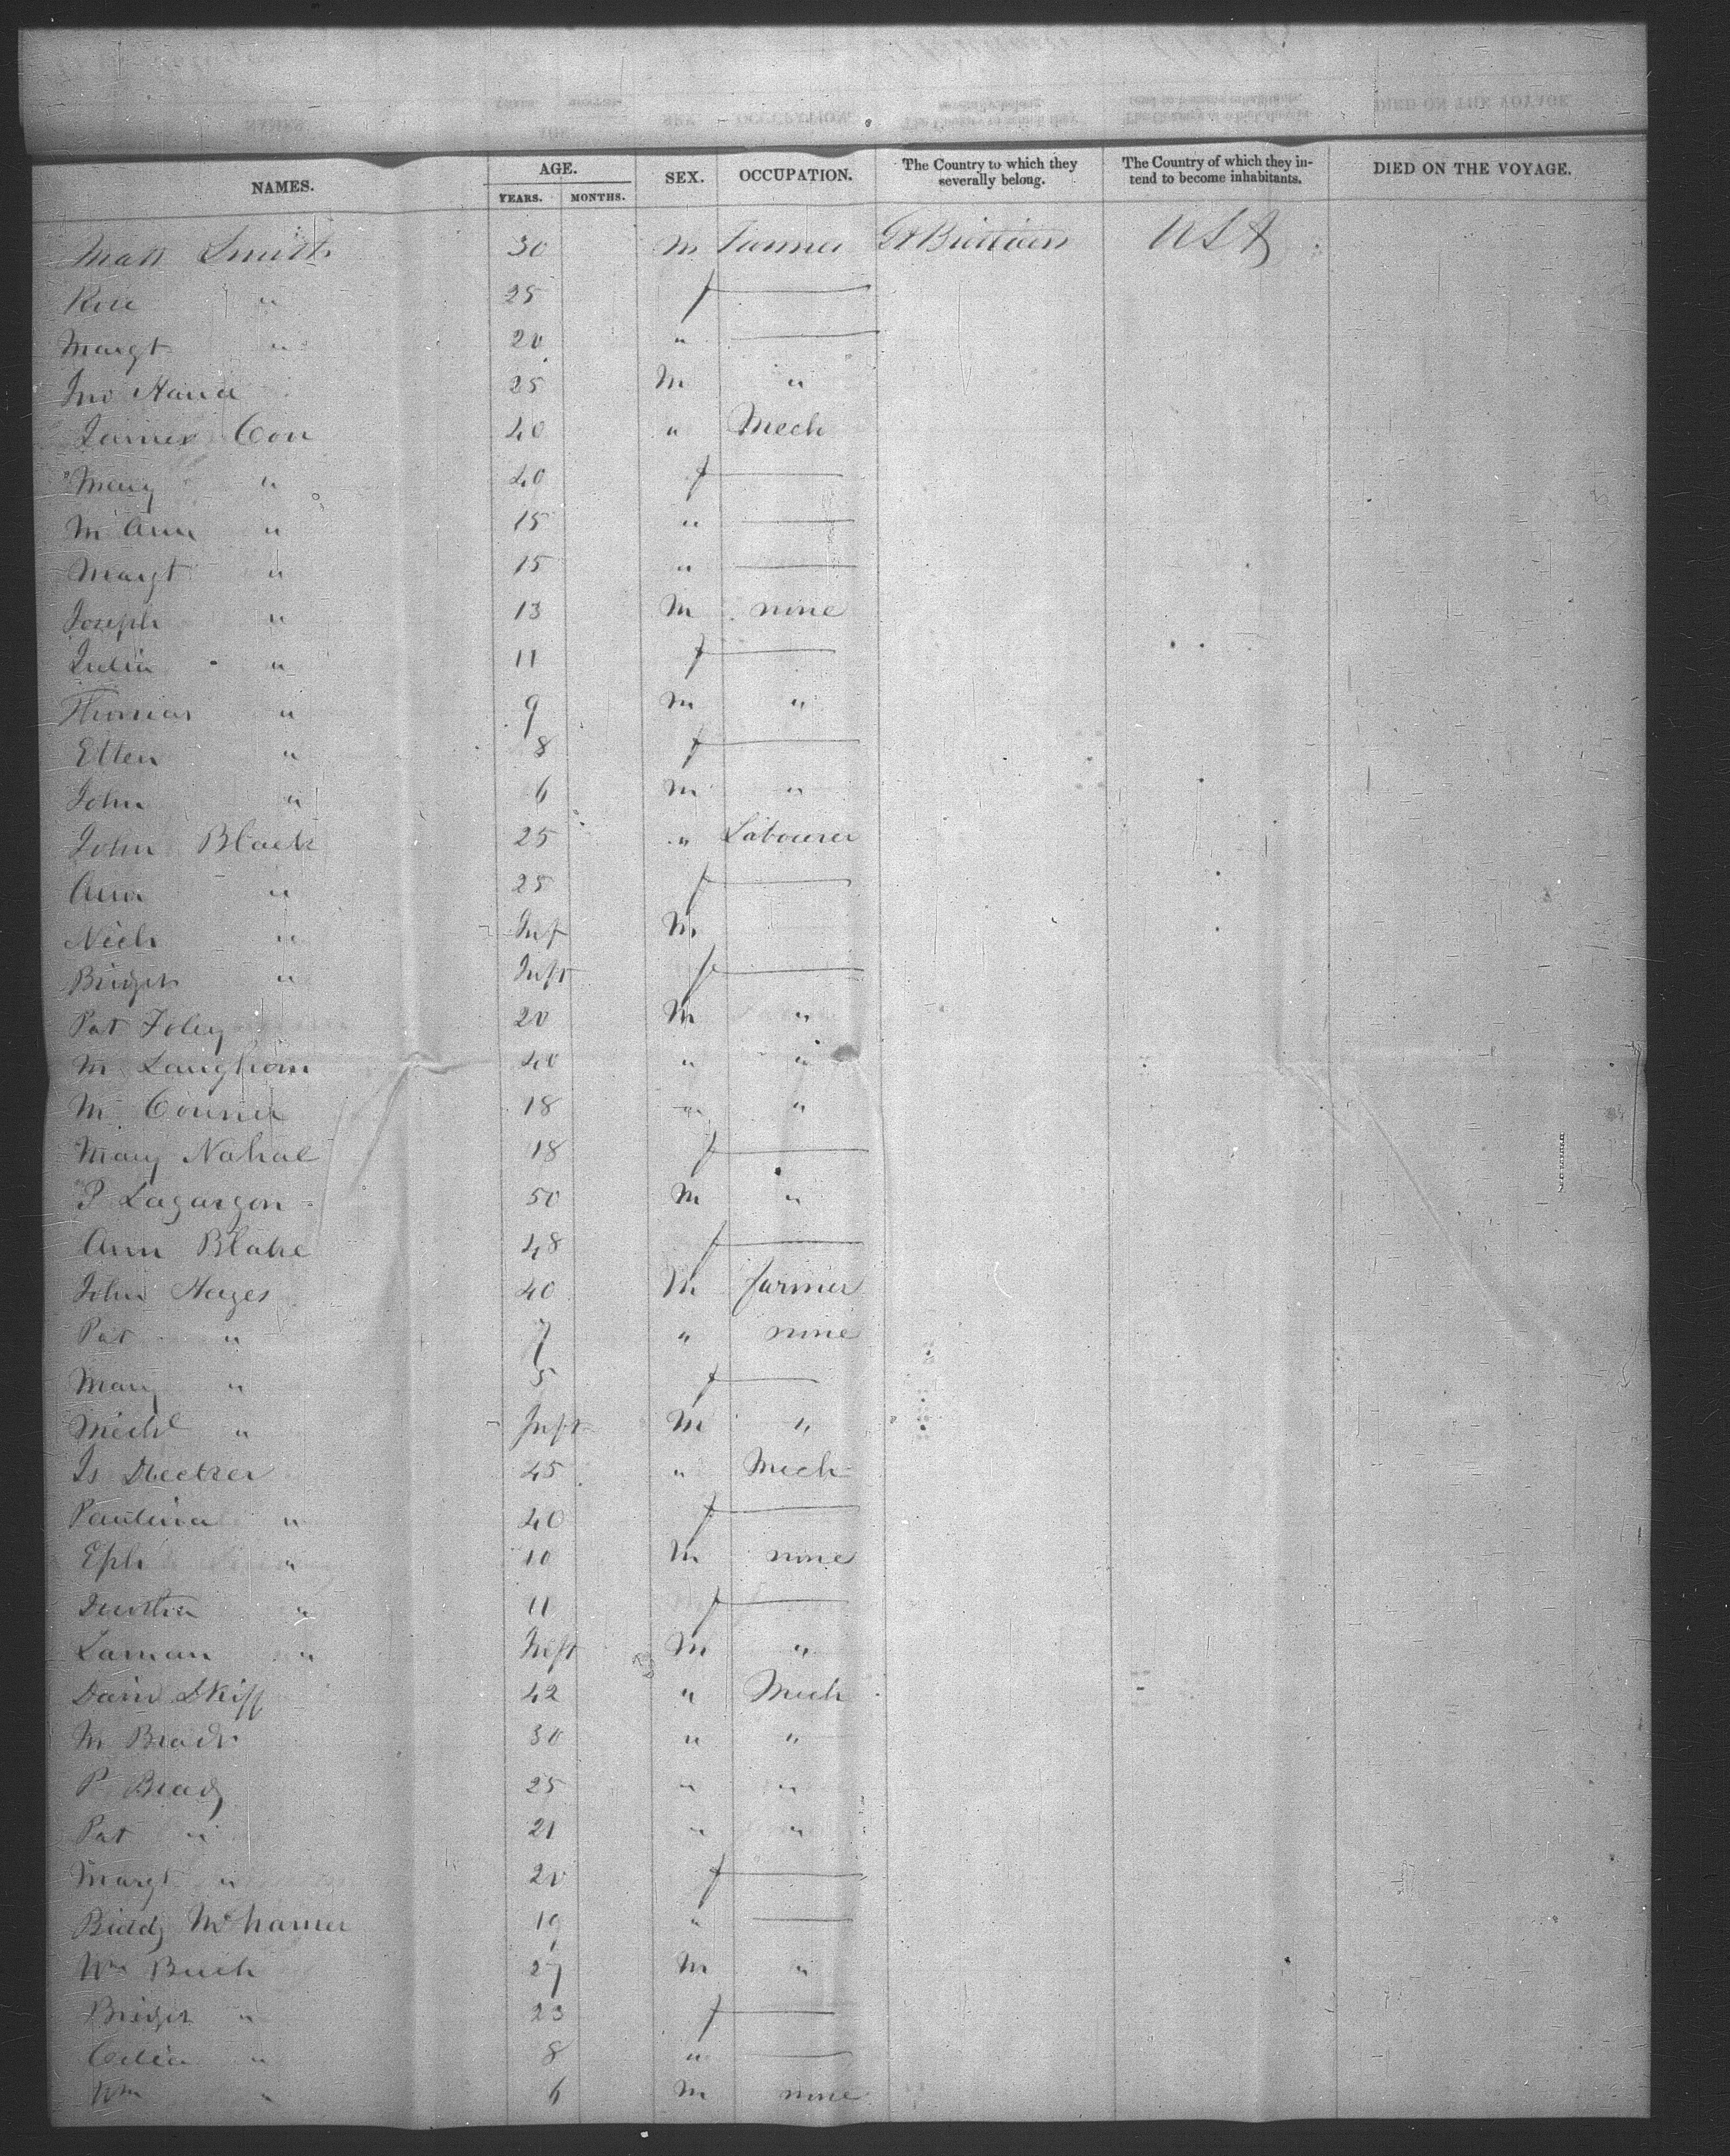 NAMES. AGE. YEARS. MONTHS. SEX. OCCUPATION. The Country to which they severally belong. The Country of which they intend to become inhabitants. DIED ON THE VOYAGE.
Matt Smith 30 M Farmer Gt Britain USA
Rose " 25 f —
Margt " 20 " —
Jno Hand 25 M "
James Con 40 " Mech
Mary " 40 f —
M Ann " 15 " —
Margt " 15 " —
Joseph " 13 M none
Julia " 11 f —
Thomas " 9 M "
Ellen " 8 f —
John " 6 M "
John Black 25 " Labourer
Ann " 25 f —
Nich " Inf M
Bridget " Inft f —
Pat Foley 20 M "
M Langhom 40 " "
M Conner 18 " "
Mary Nahal 18 f —
P Lagargon 50 M "
Ann Blake 48 f —
John Hayes 40 M farmer
Pat " 7 " none
Mary " 5 f —
Michl " Inft M "
Js 45 " Mech
Paulina " 40 f —
Eph " 10 M none
" 11 f —
Laman " Inft M "
42 " Mech
M 30 " "
P Brady 25 " "
Pat " 21 " "
Margt " 20 f —
Biddy 19 " —
Wm 27 M "
Bridget " 23 f —
Celia " 8 " —
Wm " 6 M none